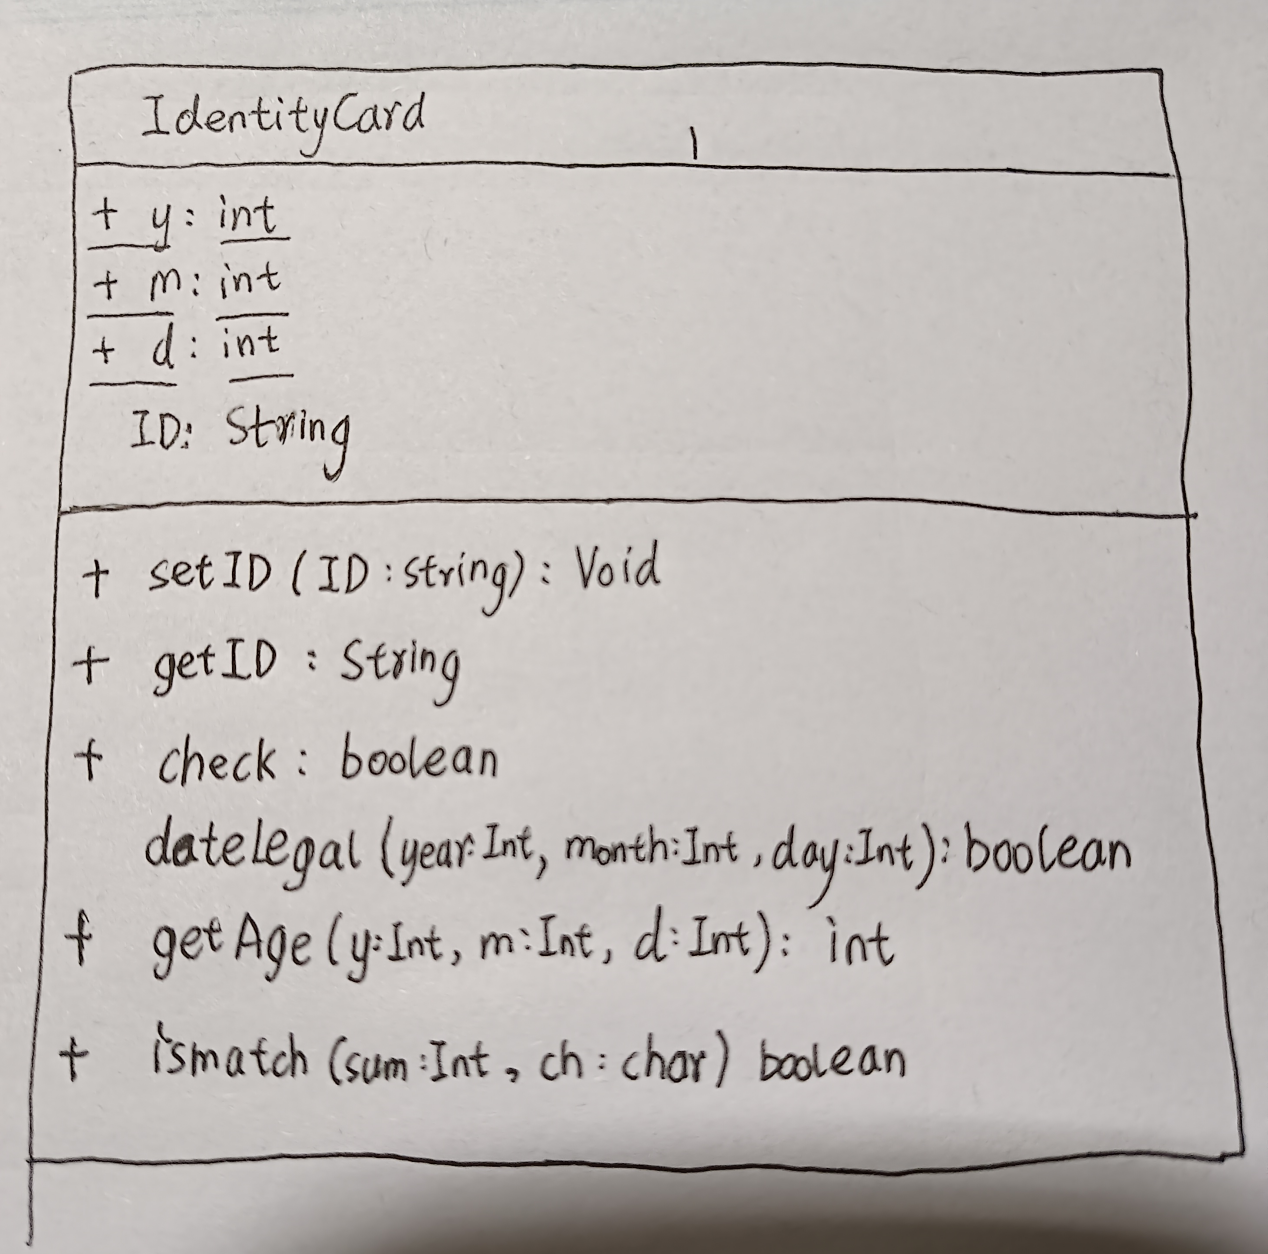 IdentityCard
+ y: int
+ m: int
+ d: int
ID: String
+ setID (ID: string): Void
+ getID: String
+ check: boolean
datelegal (year: Int, month: Int, day: Int): boolean
+ getAge (y: Int, m: Int, d: Int): int
+ ismatch (sum: Int, ch: char) boolean